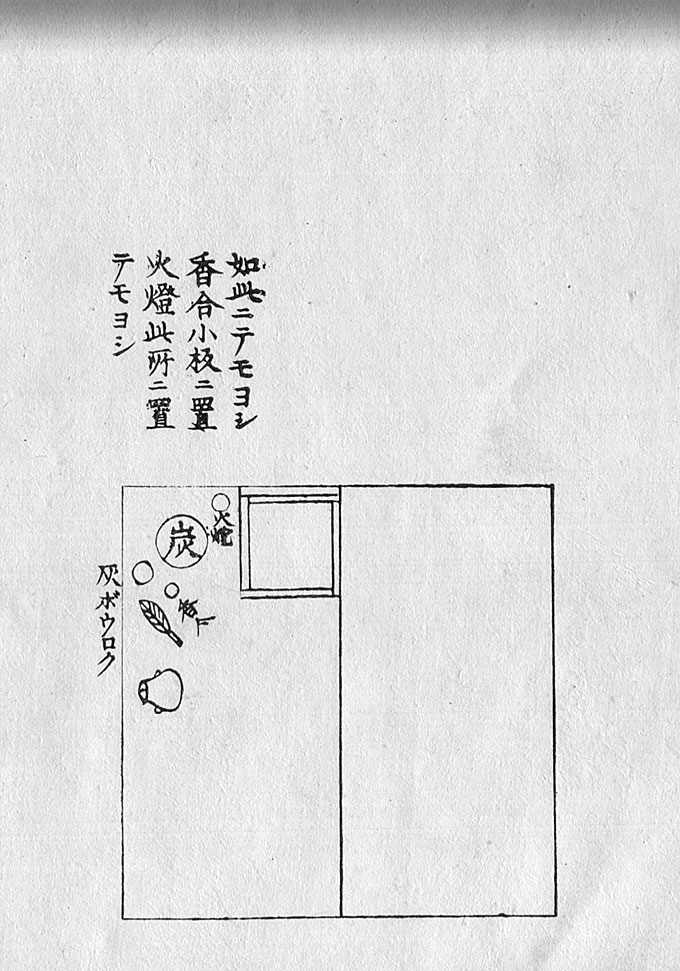 如此ニテモヨシ
香合小板ニ置
火燈此所ニ置
テモヨシ
火燈
炭
灰ボウロク